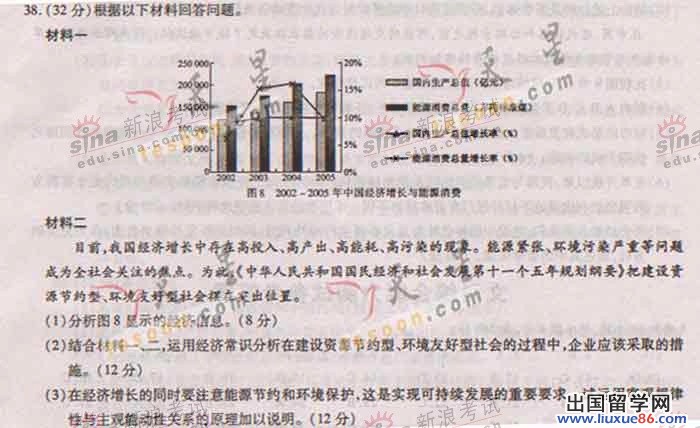 38.(32 分)根据以下材料回答问题。
材料一
250 000
200 000
150 000
100 000
50 000
0
20%
15%
10%
5%
0%
2002 2003 2004 2005
国内生产总值(亿元)
能源消费总量(万吨标准煤)
国内生产总值增长率(%)
能源消费总量增长率(%)
图 8 2002-2005 年中国经济增长与能源消费
材料二
目前,我国经济增长中存在高投入、高产出、高能耗、高污染的现象。能源紧张、环境污染严重等问题
成为全社会关注的焦点。为此,《中华人民共和国国民经济和社会发展第十一个五年规划纲要》把建设资
源节约型、环境友好型社会摆在突出位置。
(1)分析图 8 显示的经济信息。(8 分)
(2)结合材料一、二,运用经济常识分析在建设资源节约型、环境友好型社会的过程中,企业应该采取的措
施。(12 分)
(3)在经济增长的同时要注意能源节约和环境保护,这是实现可持续发展的重要要求。试运用客观规律
性与主观能动性关系的原理加以说明。(12 分)
sina 新浪考试
edu.sina.com.cn
天星
tesoon.com
出国留学网
www.liuxue86.com